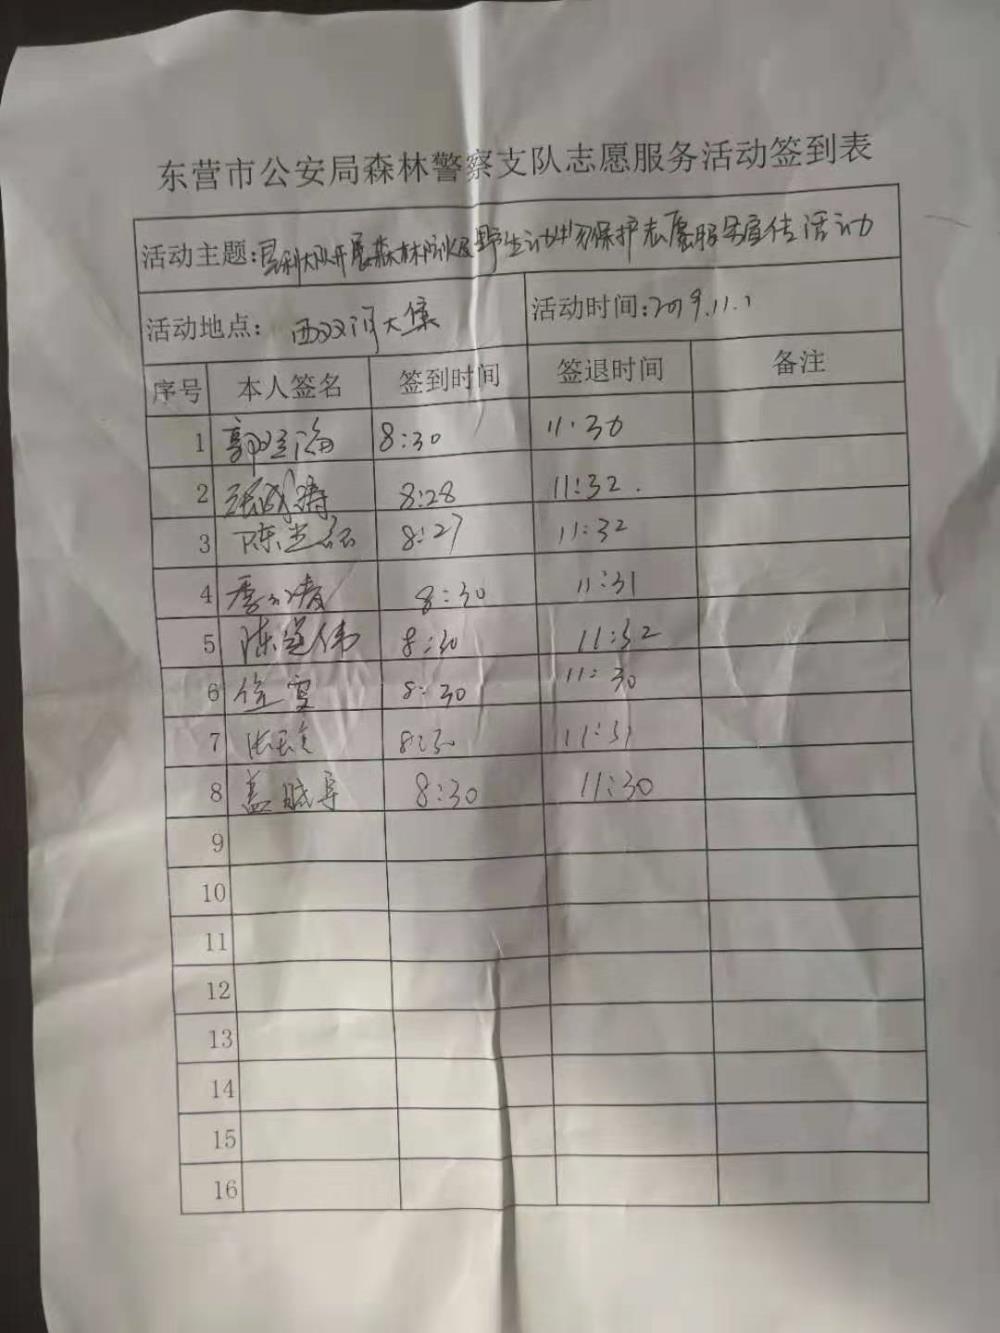 东营市公安局森林警察支队志愿服务活动签到表
活动主题:垦利大队开展森林防火及野生动物保护志愿服务宣传活动
活动地点: 西双河大集 活动时间:2019.11.1
序号 本人签名 签到时间 签退时间 备注
1 郭 海 8:30 11:30
2 张成涛 8:28 11:32.
3 陈 8:27 11:32
4 8:30 11:31
5 陈 伟 8:30 11:32
6 徐 8:30 11:30
7 8:30 11:31
8 盖 8:30 11:30
9
10
11
12
13
14
15
16